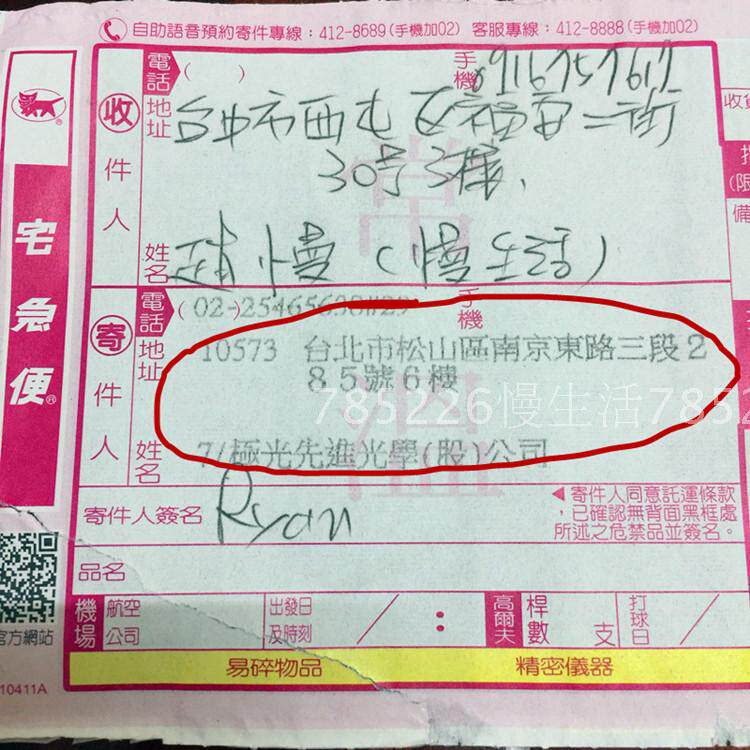 自助語音預約寄件專線：412-8689(手機加02) 客服專線：412-8888(手機加02)
宅急便
收件人
電話 ( ) 手機 0916757617
地址 台中市西屯區
30号3樓、
姓名 趙小慢（慢生活）
收貨
寄件人
電話 (02-)25465638#29 手機
地址 10573 台北市松山區南京東路三段2
85號6樓
785226慢生活785226
姓名 7/極光先進光學(股)公司
寄件人簽名 Ryan
◀寄件人同意託運條款
，已確認無背面黑框處
所述之危禁品並簽名。
品名
機場 航空公司 出發日及時刻 / : 高爾夫 桿數 支 打球日 /
官方網站
易碎物品 精密儀器
10411A